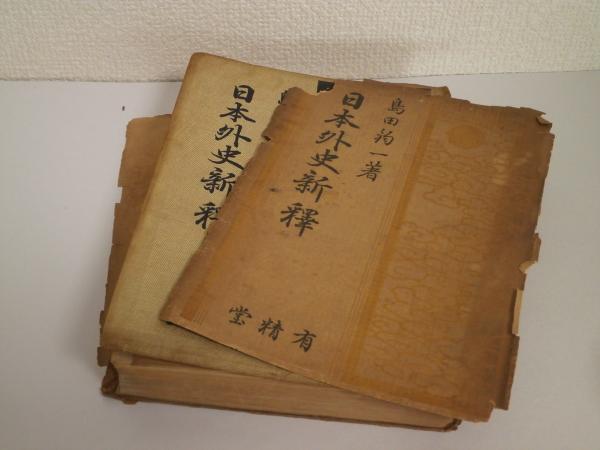 島田鈞一著
日本外史新釋
有精堂
日本外史新釋